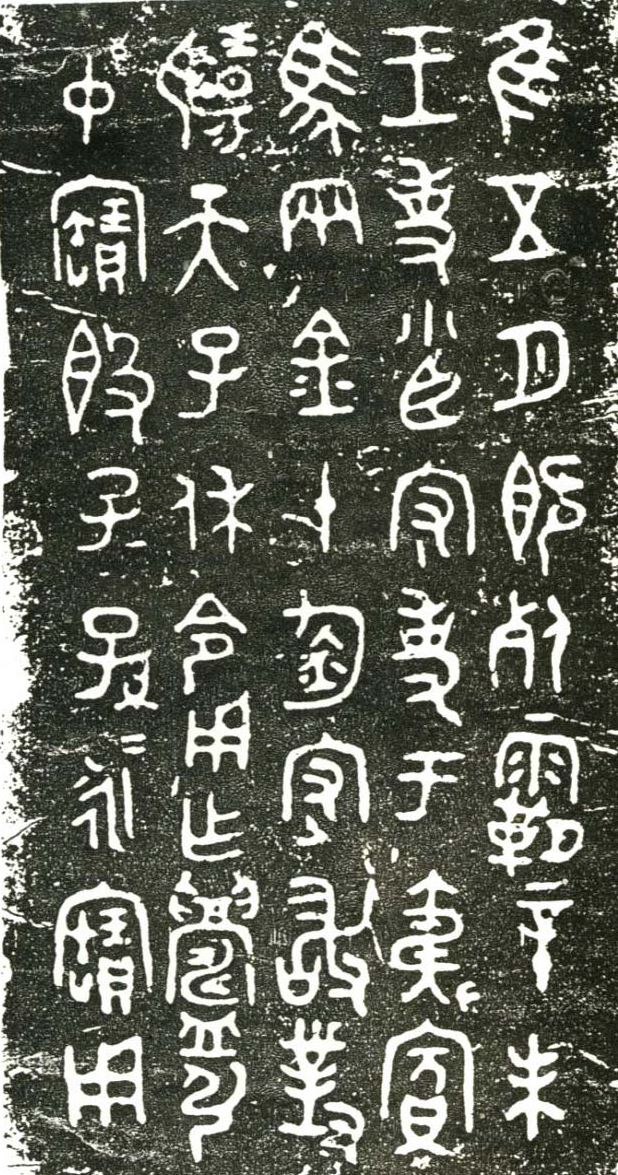 隹五月既死霸辛未
王吏小臣守吏于夷賓
馬兩金十鈞守敢對
揚天子休令用乍鑄引
中寶𣪘子孫=永寶用